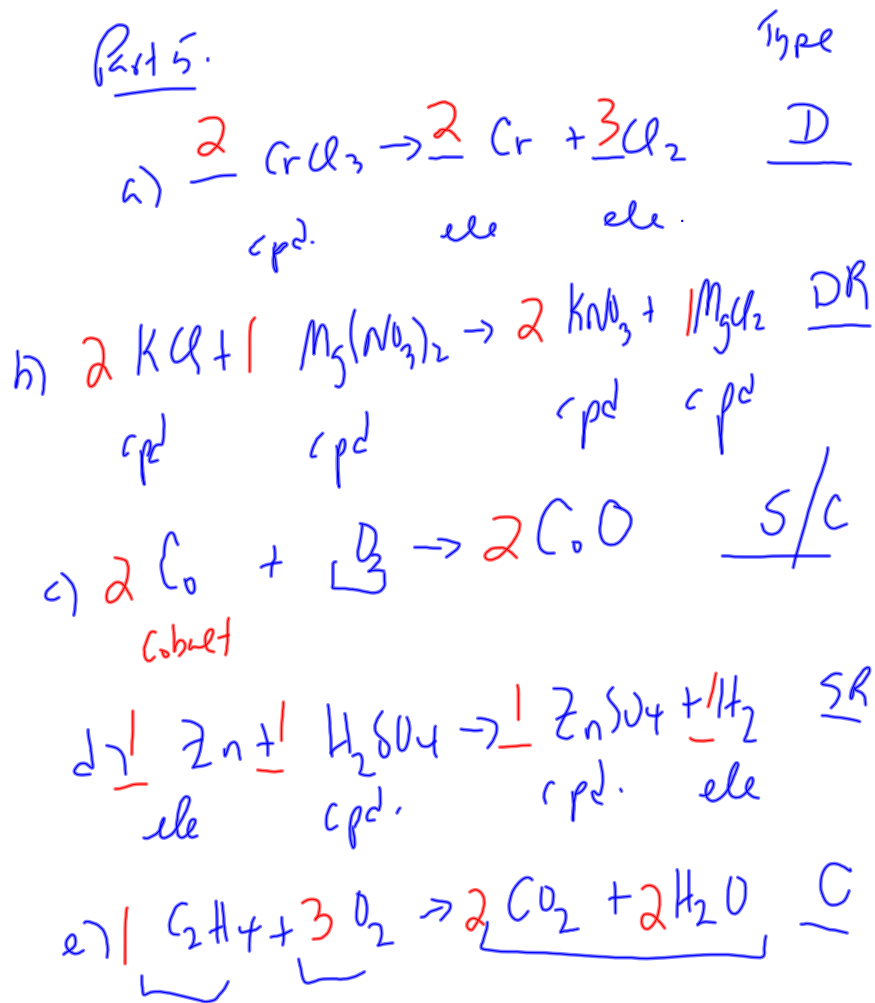 Part 5. Type
a) 2 CrCl₃ → 2 Cr + 3Cl₂ D
cpd. ele ele.
b) 2 KCl + 1 Mg(NO₃)₂ → 2 KNO₃ + 1MgCl₂ DR
cpd cpd cpd cpd
c) 2 Co + O₂ → 2 CoO S/C
Cobalt
d) 1 Zn + 1 H₂SO₄ → 1 ZnSO₄ + 1H₂ SR
ele cpd. cpd. ele
e) 1 C₂H₄ + 3 O₂ → 2 CO₂ + 2 H₂O C